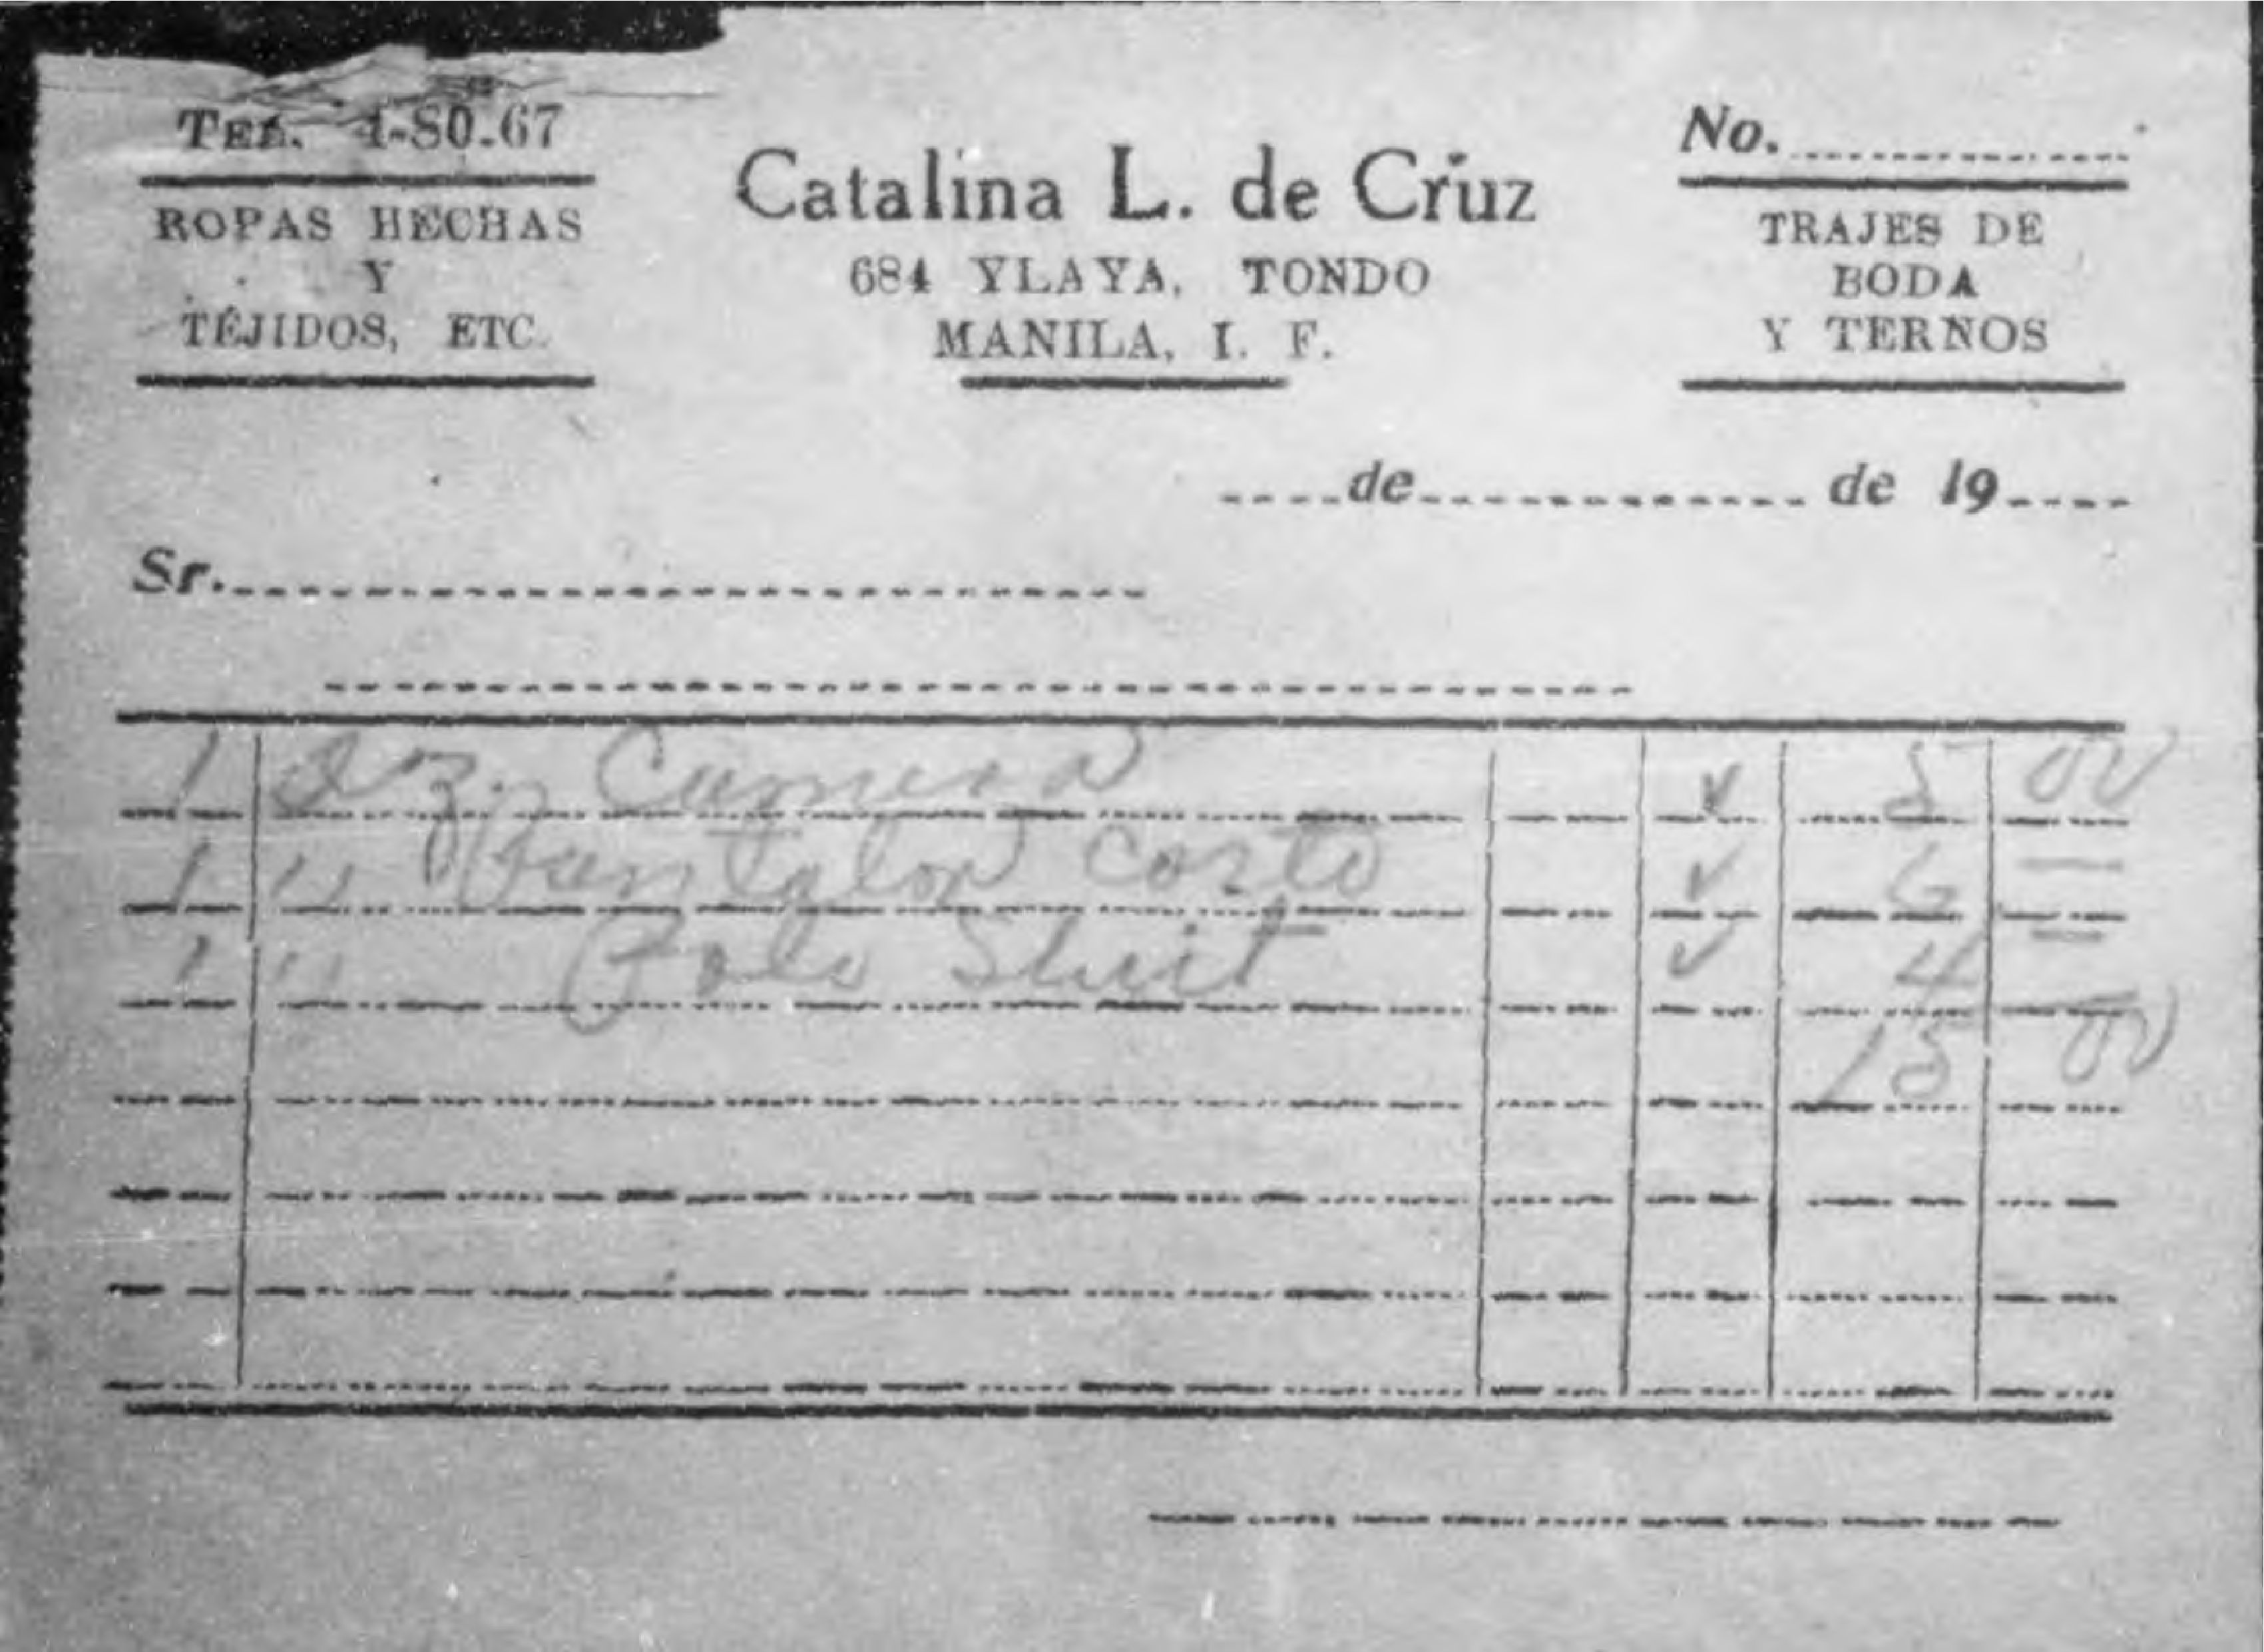 TEL. 4-80.67
ROPAS HECHAS
Y
TEJIDOS, ETC.
Catalina L. de Cruz
684 YLAYA, TONDO
MANILA, I. F.
No.
TRAJES DE
BODA
Y TERNOS
de de 19
Sr.
1 dz. Camisa ✓ 5 00
1 " Pantalon corto ✓ 6 —
1 " Polo Shirt ✓ 4 =
15 00